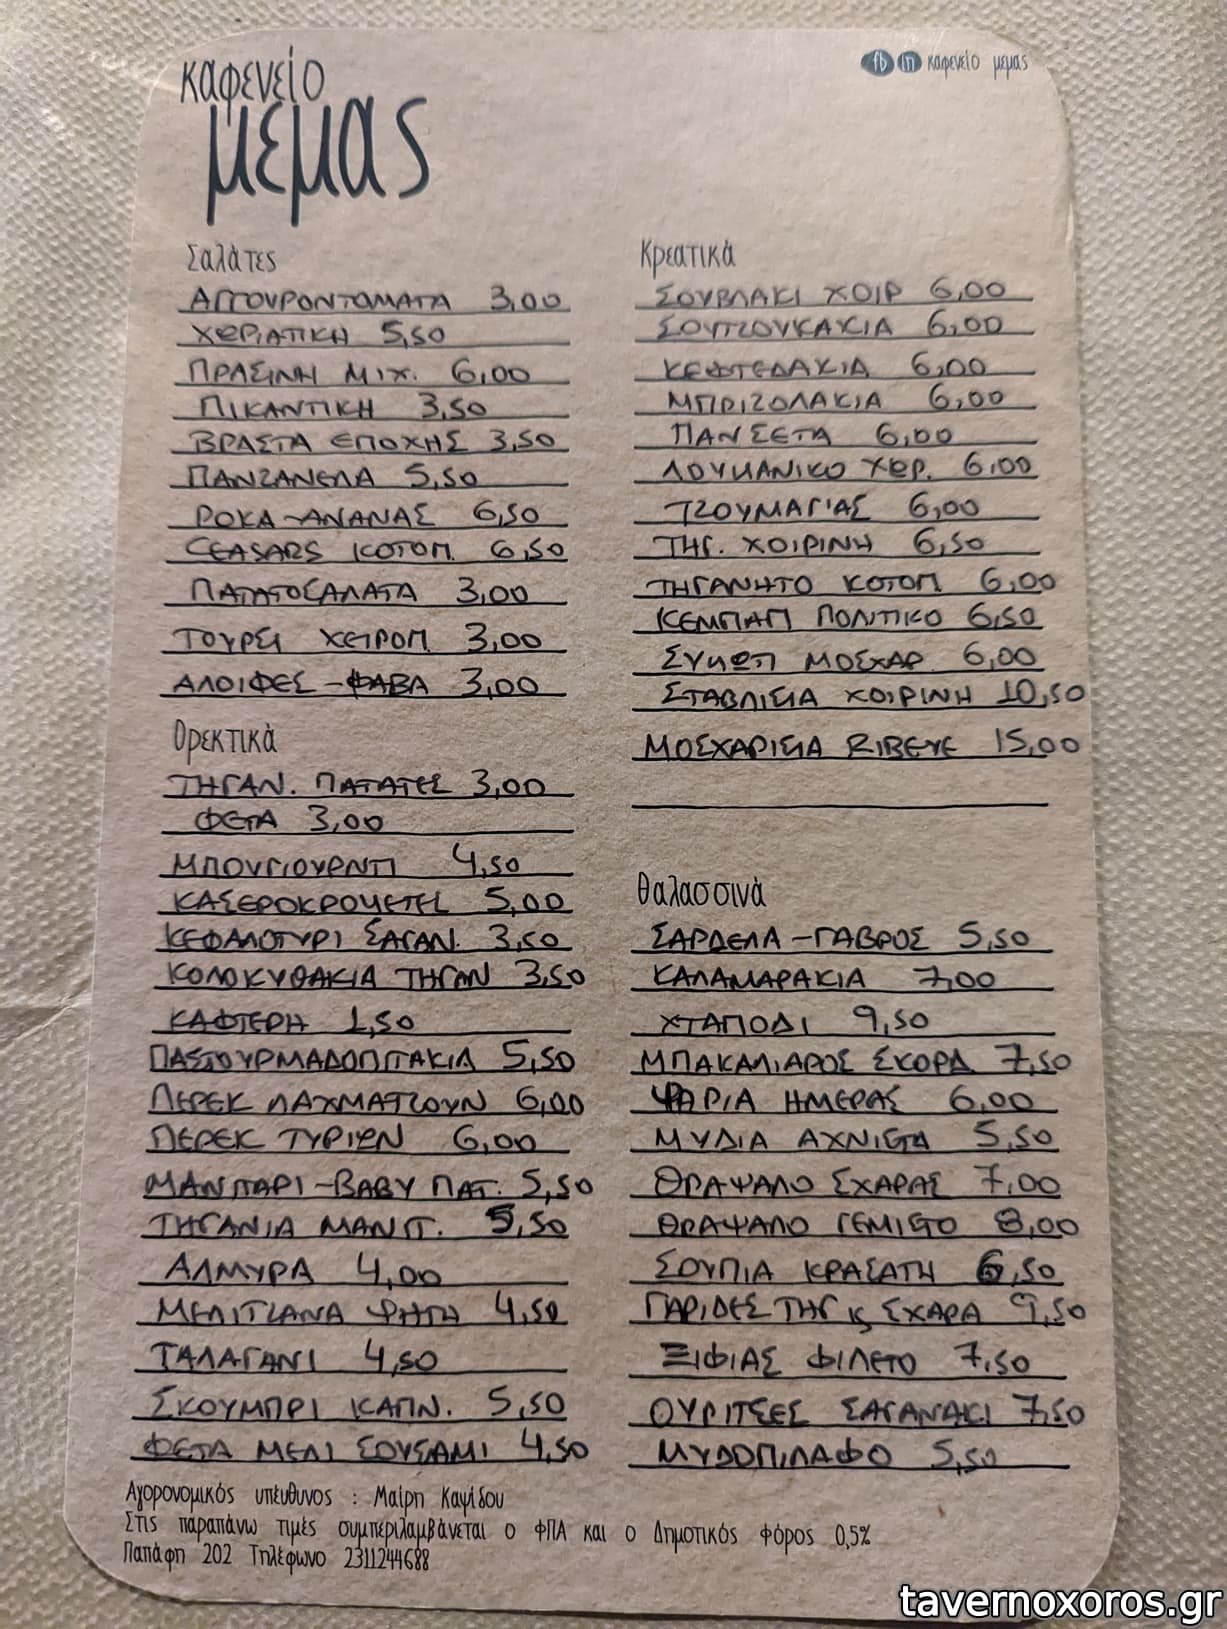 καφενείο
μεμας
fb in καφενείο μεμας
Σαλάτες
ΑΓΓΟΥΡΟΝΤΟΜΑΤΑ 3,00
ΧΩΡΙΑΤΙΚΗ 5,50
ΠΡΑΣΙΝΗ ΜΙΧ. 6,00
ΠΙΚΑΝΤΙΚΗ 3,50
ΒΡΑΣΤΑ ΕΠΟΧΗΣ 3,50
ΠΑΝΖΑΝΕΛΑ 5,50
ΡΟΚΑ-ΑΝΑΝΑΣ 6,50
CEASARS ΚΟΤΟΠ. 6,50
ΠΑΤΑΤΟΣΑΛΑΤΑ 3,00
ΤΟΥΡΣΙ ΧΕΙΡΟΠ. 3,00
ΑΛΟΙΦΕΣ-ΦΑΒΑ 3,00
Ορεκτικά
ΤΗΓΑΝ. ΠΑΤΑΤΕΣ 3,00
ΦΕΤΑ 3,00
ΜΠΟΥΓΙΟΥΡΝΤΙ 4,50
ΚΑΣΕΡΟΚΡΟΚΕΤΕΣ 5,00
ΚΕΦΑΛΟΤΥΡΙ ΣΑΓΑΝ. 3,50
ΚΟΛΟΚΥΘΑΚΙΑ ΤΗΓΑΝ 3,50
ΚΑΦΤΕΡΗ 1,50
ΠΑΣΤΟΥΡΜΑΔΟΠΙΤΑΚΙΑ 5,50
ΠΕΡΕΚ ΛΑΧΜΑΤΖΟΥΝ 6,00
ΠΕΡΕΚ ΤΥΡΙΩΝ 6,00
ΜΑΝΙΤΑΡΙ-BABY ΠΑΤ. 5,50
ΤΗΓΑΝΙΑ ΜΑΝΙΤ. 5,50
ΑΛΜΥΡΑ 4,00
ΜΕΛΙΤΖΑΝΑ ΨΗΤΗ 4,50
ΤΑΛΑΓΑΝΙ 4,50
ΣΚΟΥΜΠΡΙ ΚΑΠΝ. 5,50
ΦΕΤΑ ΜΕΛΙ ΣΟΥΣΑΜΙ 4,50
Κρεατικά
ΣΟΥΒΛΑΚΙ ΧΟΙΡ 6,00
ΣΟΥΤΖΟΥΚΑΚΙΑ 6,00
ΚΕΦΤΕΔΑΚΙΑ 6,00
ΜΠΡΙΖΟΛΑΚΙΑ 6,00
ΠΑΝΣΕΤΑ 6,00
ΛΟΥΚΑΝΙΚΟ ΧΩΡ. 6,00
ΤΖΟΥΜΑΓΙΑΣ 6,00
ΤΗΓ. ΧΟΙΡΙΝΗ 6,50
ΤΗΓΑΝΗΤΟ ΚΟΤΟΠ 6,00
ΚΕΜΠΑΠ ΠΟΛΙΤΙΚΟ 6,50
ΣΥΚΩΤΙ ΜΟΣΧΑΡ. 6,00
ΣΤΑΒΛΙΣΙΑ ΧΟΙΡΙΝΗ 10,50
ΜΟΣΧΑΡΙΣΙΑ RIBEYE 15,00
Θαλασσινά
ΣΑΡΔΕΛΑ-ΓΑΒΡΟΣ 5,50
ΚΑΛΑΜΑΡΑΚΙΑ 7,00
ΧΤΑΠΟΔΙ 9,50
ΜΠΑΚΑΛΙΑΡΟΣ ΣΚΟΡΔ 7,50
ΨΑΡΙΑ ΗΜΕΡΑΣ 6,00
ΜΥΔΙΑ ΑΧΝΙΣΤΑ 5,50
ΘΡΑΨΑΛΟ ΣΧΑΡΑΣ 7,00
ΘΡΑΨΑΛΟ ΓΕΜΙΣΤΟ 8,00
ΣΟΥΠΙΑ ΚΡΑΣΑΤΗ 6,50
ΓΑΡΙΔΕΣ ΤΗΓ ϗ ΣΧΑΡΑ 9,50
ΞΙΦΙΑΣ ΦΙΛΕΤΟ 7,50
ΟΥΡΙΤΣΕΣ ΣΑΓΑΝΑΚΙ 7,50
ΜΥΔΟΠΙΛΑΦΟ 5,50
Αγορονομικός υπεύθυνος : Μαίρη Καψίδου
Στις παραπάνω τιμές συμπεριλαμβάνεται ο ΦΠΑ και ο Δημοτικός φόρος 0,5%
Παπάφη 202 Τηλέφωνο 2311244688
tavernoxoros.gr